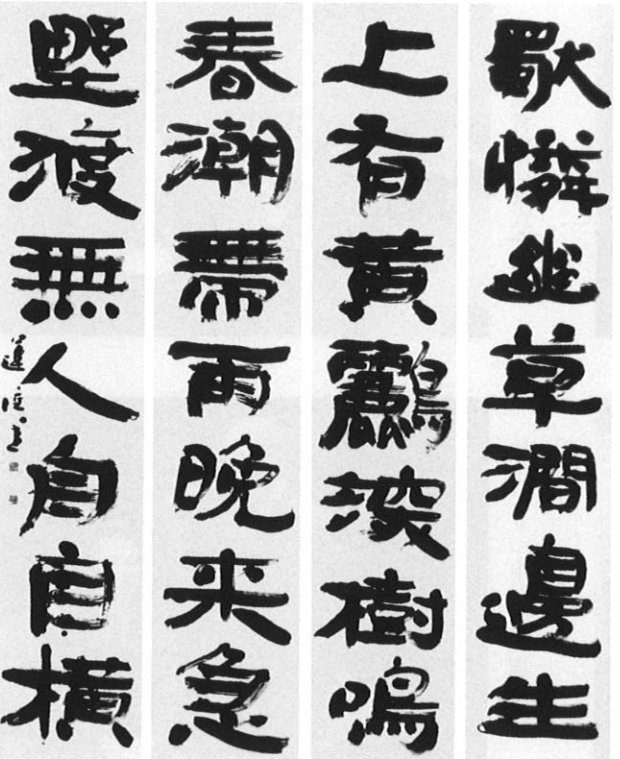 獨憐幽草澗邊生
上有黄鸝深樹鳴
春潮帶雨晚来急
野渡無人舟自橫